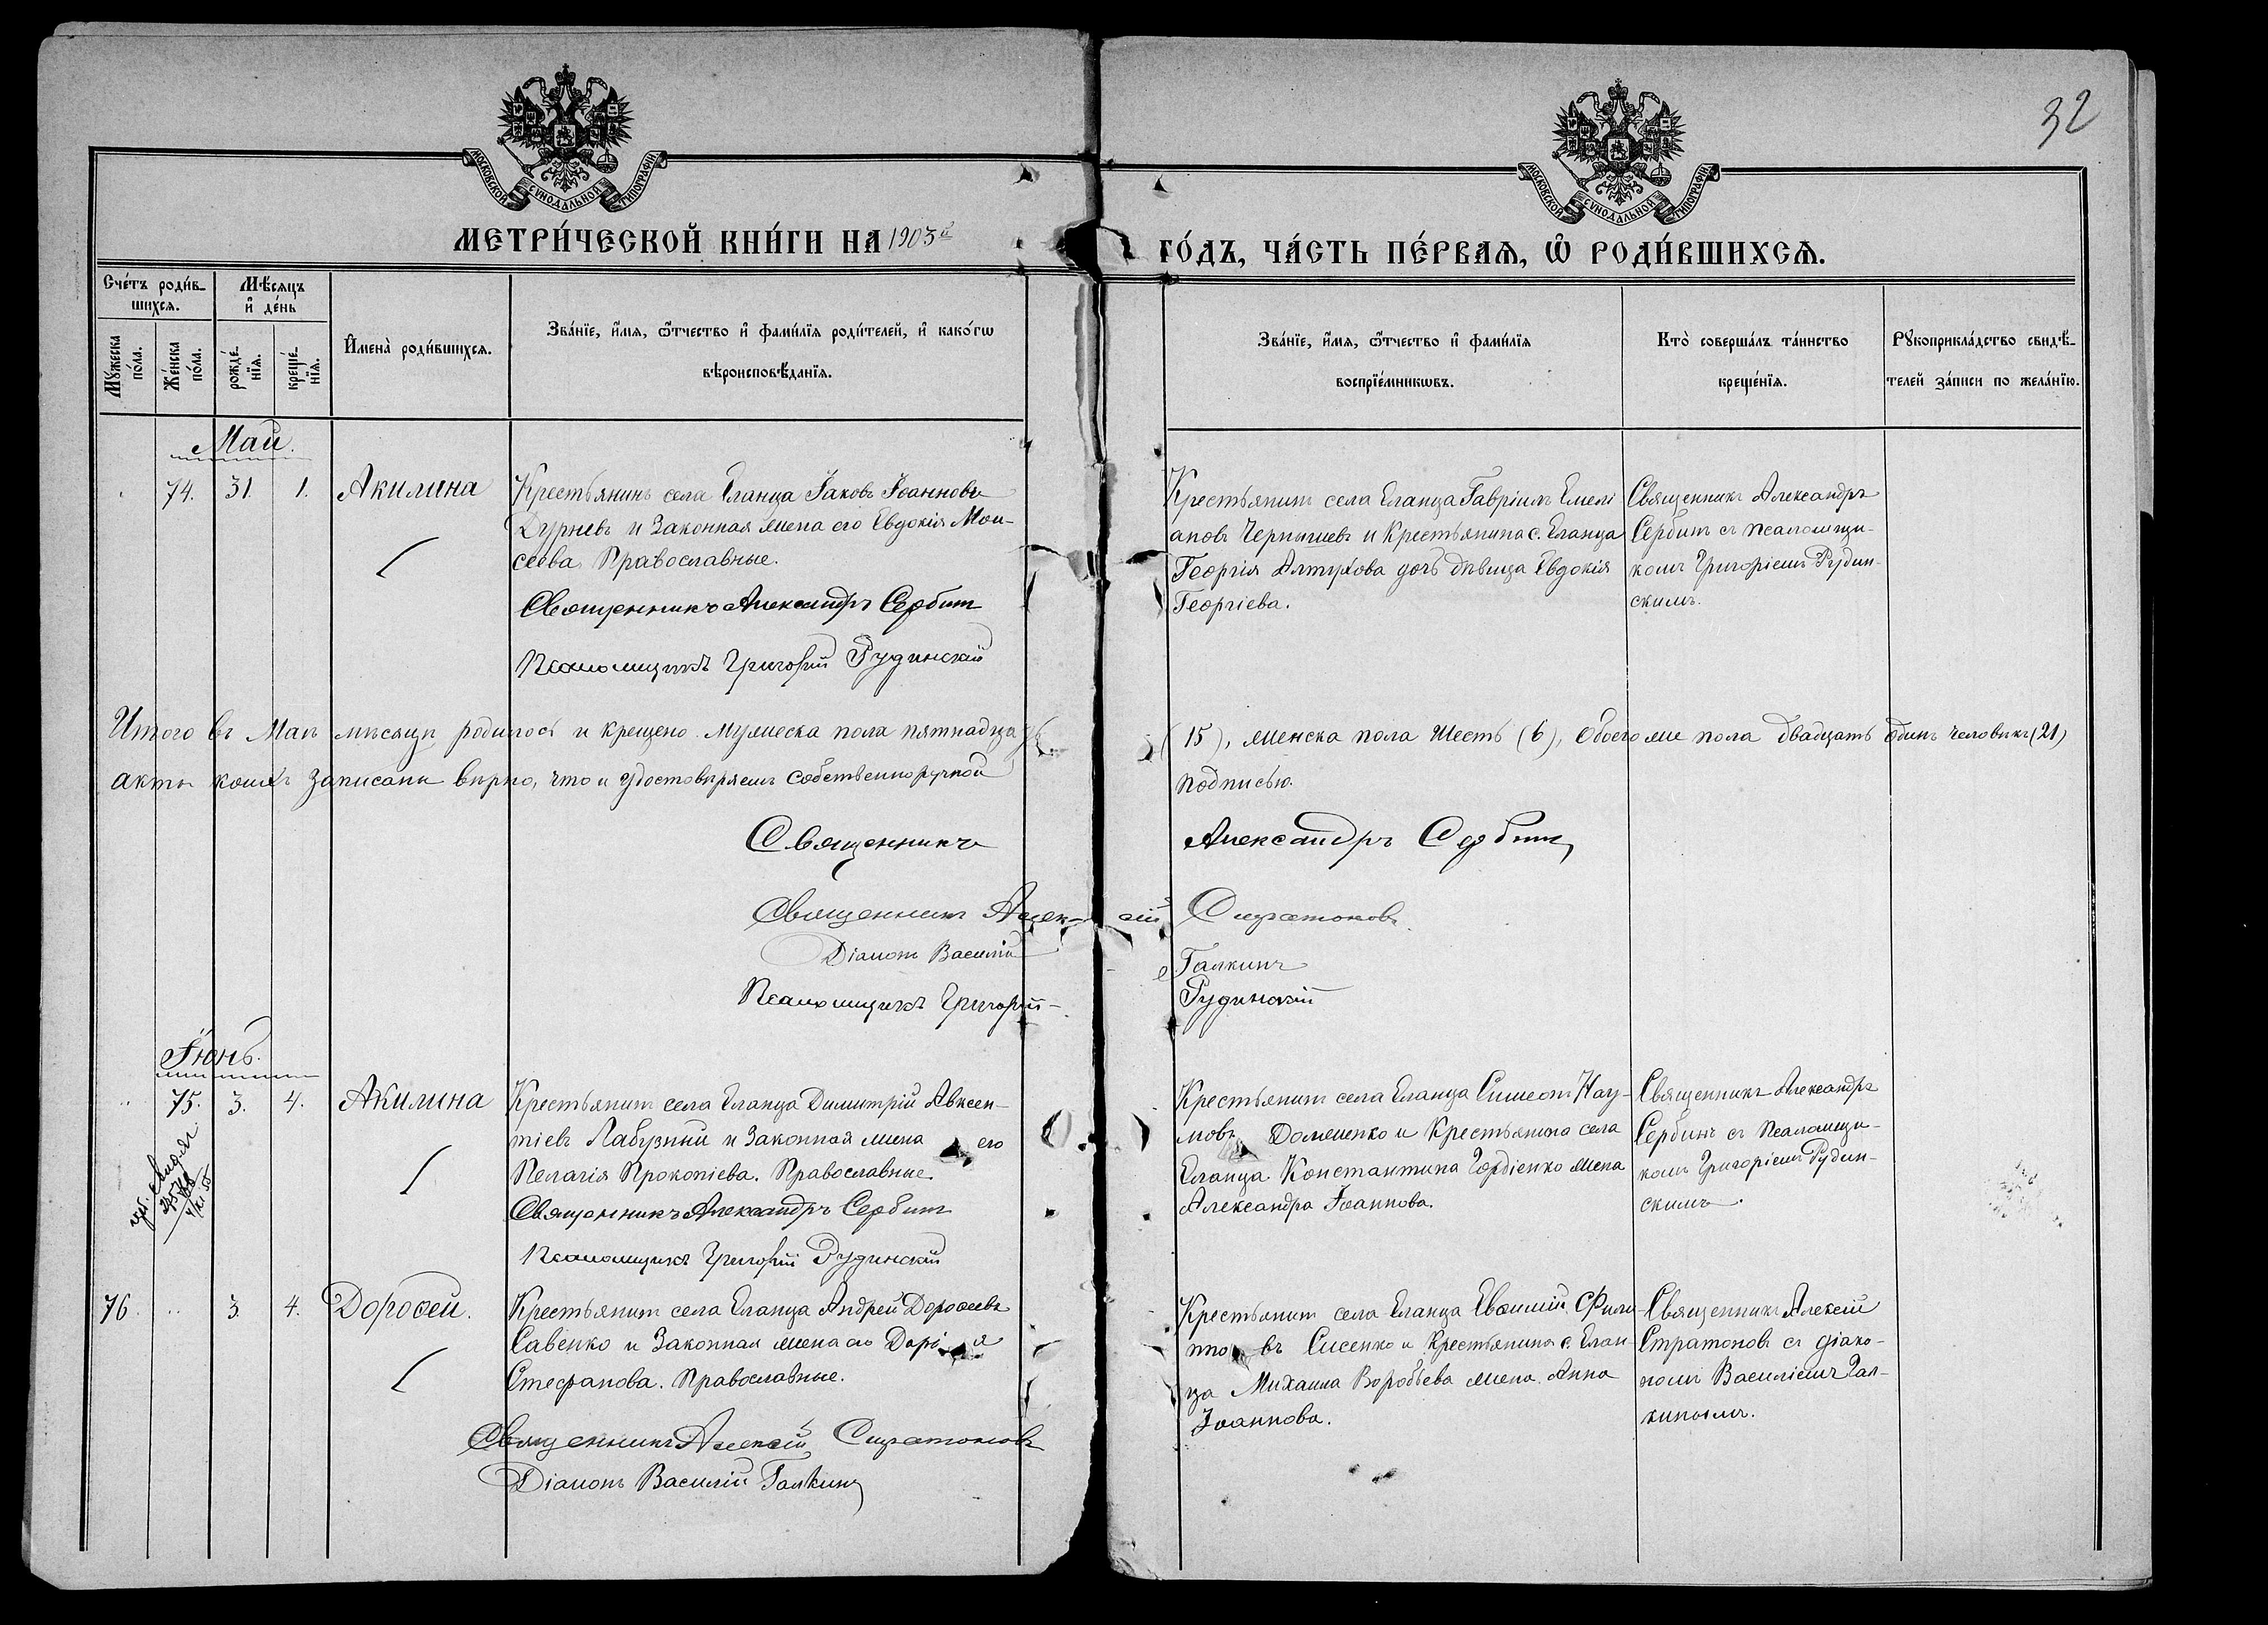 32
МОСКОВСКОЙ СѴНОДАЛЬНОЙ ТИПОГРАФІИ
МОСКОВСКОЙ СѴНОДАЛЬНОЙ ТИПОГРАФІИ
МЕТРИ́ЧЕСКОЙ КНИ́ГИ НА 1903й
ГО́ДЪ, ЧА́СТЬ ПЕ́РВАѦ, Ѡ҆ РОДИ́ВШИХСѦ.
Сче́тъ роди́в-
шихсѧ.
Мꙋжеска
по́ла.
Же́нска
по́ла.
Мѣ́сяцъ
и҆ де́нь
рожде́-
нїѧ.
креще́-
нїѧ.
И҆мена̀ роди́вшихсѧ.
Зва́нїе, и҆́мѧ, ѿ́тчество и҆ фами́лїѧ роди́телей, и҆ како́гѡ
вѣроисповѣ́данїѧ.
Зва́нїе, и҆́мѧ, ѿ́тчество и҆ фами́лїѧ
воспрїе́мникѡвъ.
Кто̀ соверша́лъ та́инство
креще́нїѧ.
Рꙋкоприкла́дство свидѣ́-
телей за́писи по жела́нїю.
Май.
74. 31. 1. Акилина
Крестьянинъ села Еланца Іаковъ Іоанновъ
Дурневъ и законная жена его Евдокія Мои-
сеева, Православные.
Священникъ Александръ Сербинъ
Псаломщикъ Григорій Рудинскій
Крестьянинъ села Еланца Гавріилъ Емелі
ановъ Чернышевъ и Крестьянина с. Еланца
Георгія Алтухова дочь дѣвица Евдокія
Георгіева.
Священникъ Александръ
Сербинъ съ псаломщи-
комъ Григоріемъ Рудин-
скимъ.
Итого въ Маѣ мѣсяцѣ родилось и крещено мужеска пола пятнадцать (15), женска пола шесть (6), обоего же пола двадцать одинъ человѣкъ (21)
акты коихъ записаны вѣрно, что и удостовѣряемъ собственноручной подписью.
Священникъ Александръ Сербинъ
Священникъ Алексій Стратоновъ
Діаконъ Василій Галкинъ
Псаломщикъ Григорій Рудинскій
Іюнь.
75. 3. 4. Акилина
Крестьянинъ села Еланца Димитрій Авксен-
тіевъ Лабузный и законная жена его
Пелагія Прокопіева. Православные.
Священникъ Александръ Сербинъ
Псаломщикъ Григорій Рудинскій
Крестьянинъ села Еланца Симеонъ Нау-
мовъ Доменко и Крестьянина села
Еланца Константина Гордіенко жена
Александра Іоаннова.
Священникъ Александръ
Сербинъ съ псаломщи-
комъ Григоріемъ Рудин-
скимъ.
76. 3. 4. Дороѳей.
Крестьянинъ села Еланца Андрей Дороѳеевъ
Савенко и законная жена его Дарія
Стефанова. Православные.
Священникъ Алексій Стратоновъ
Діаконъ Василій Галкинъ
Крестьянинъ села Еланца Евѳимій Фили-
пповъ Сисенко и крестьянина с. Елан-
ца Михаила Воробьева жена Анна
Іоаннова.
Священникъ Алексій
Стратоновъ съ діако-
номъ Василіемъ Гал-
кинымъ.